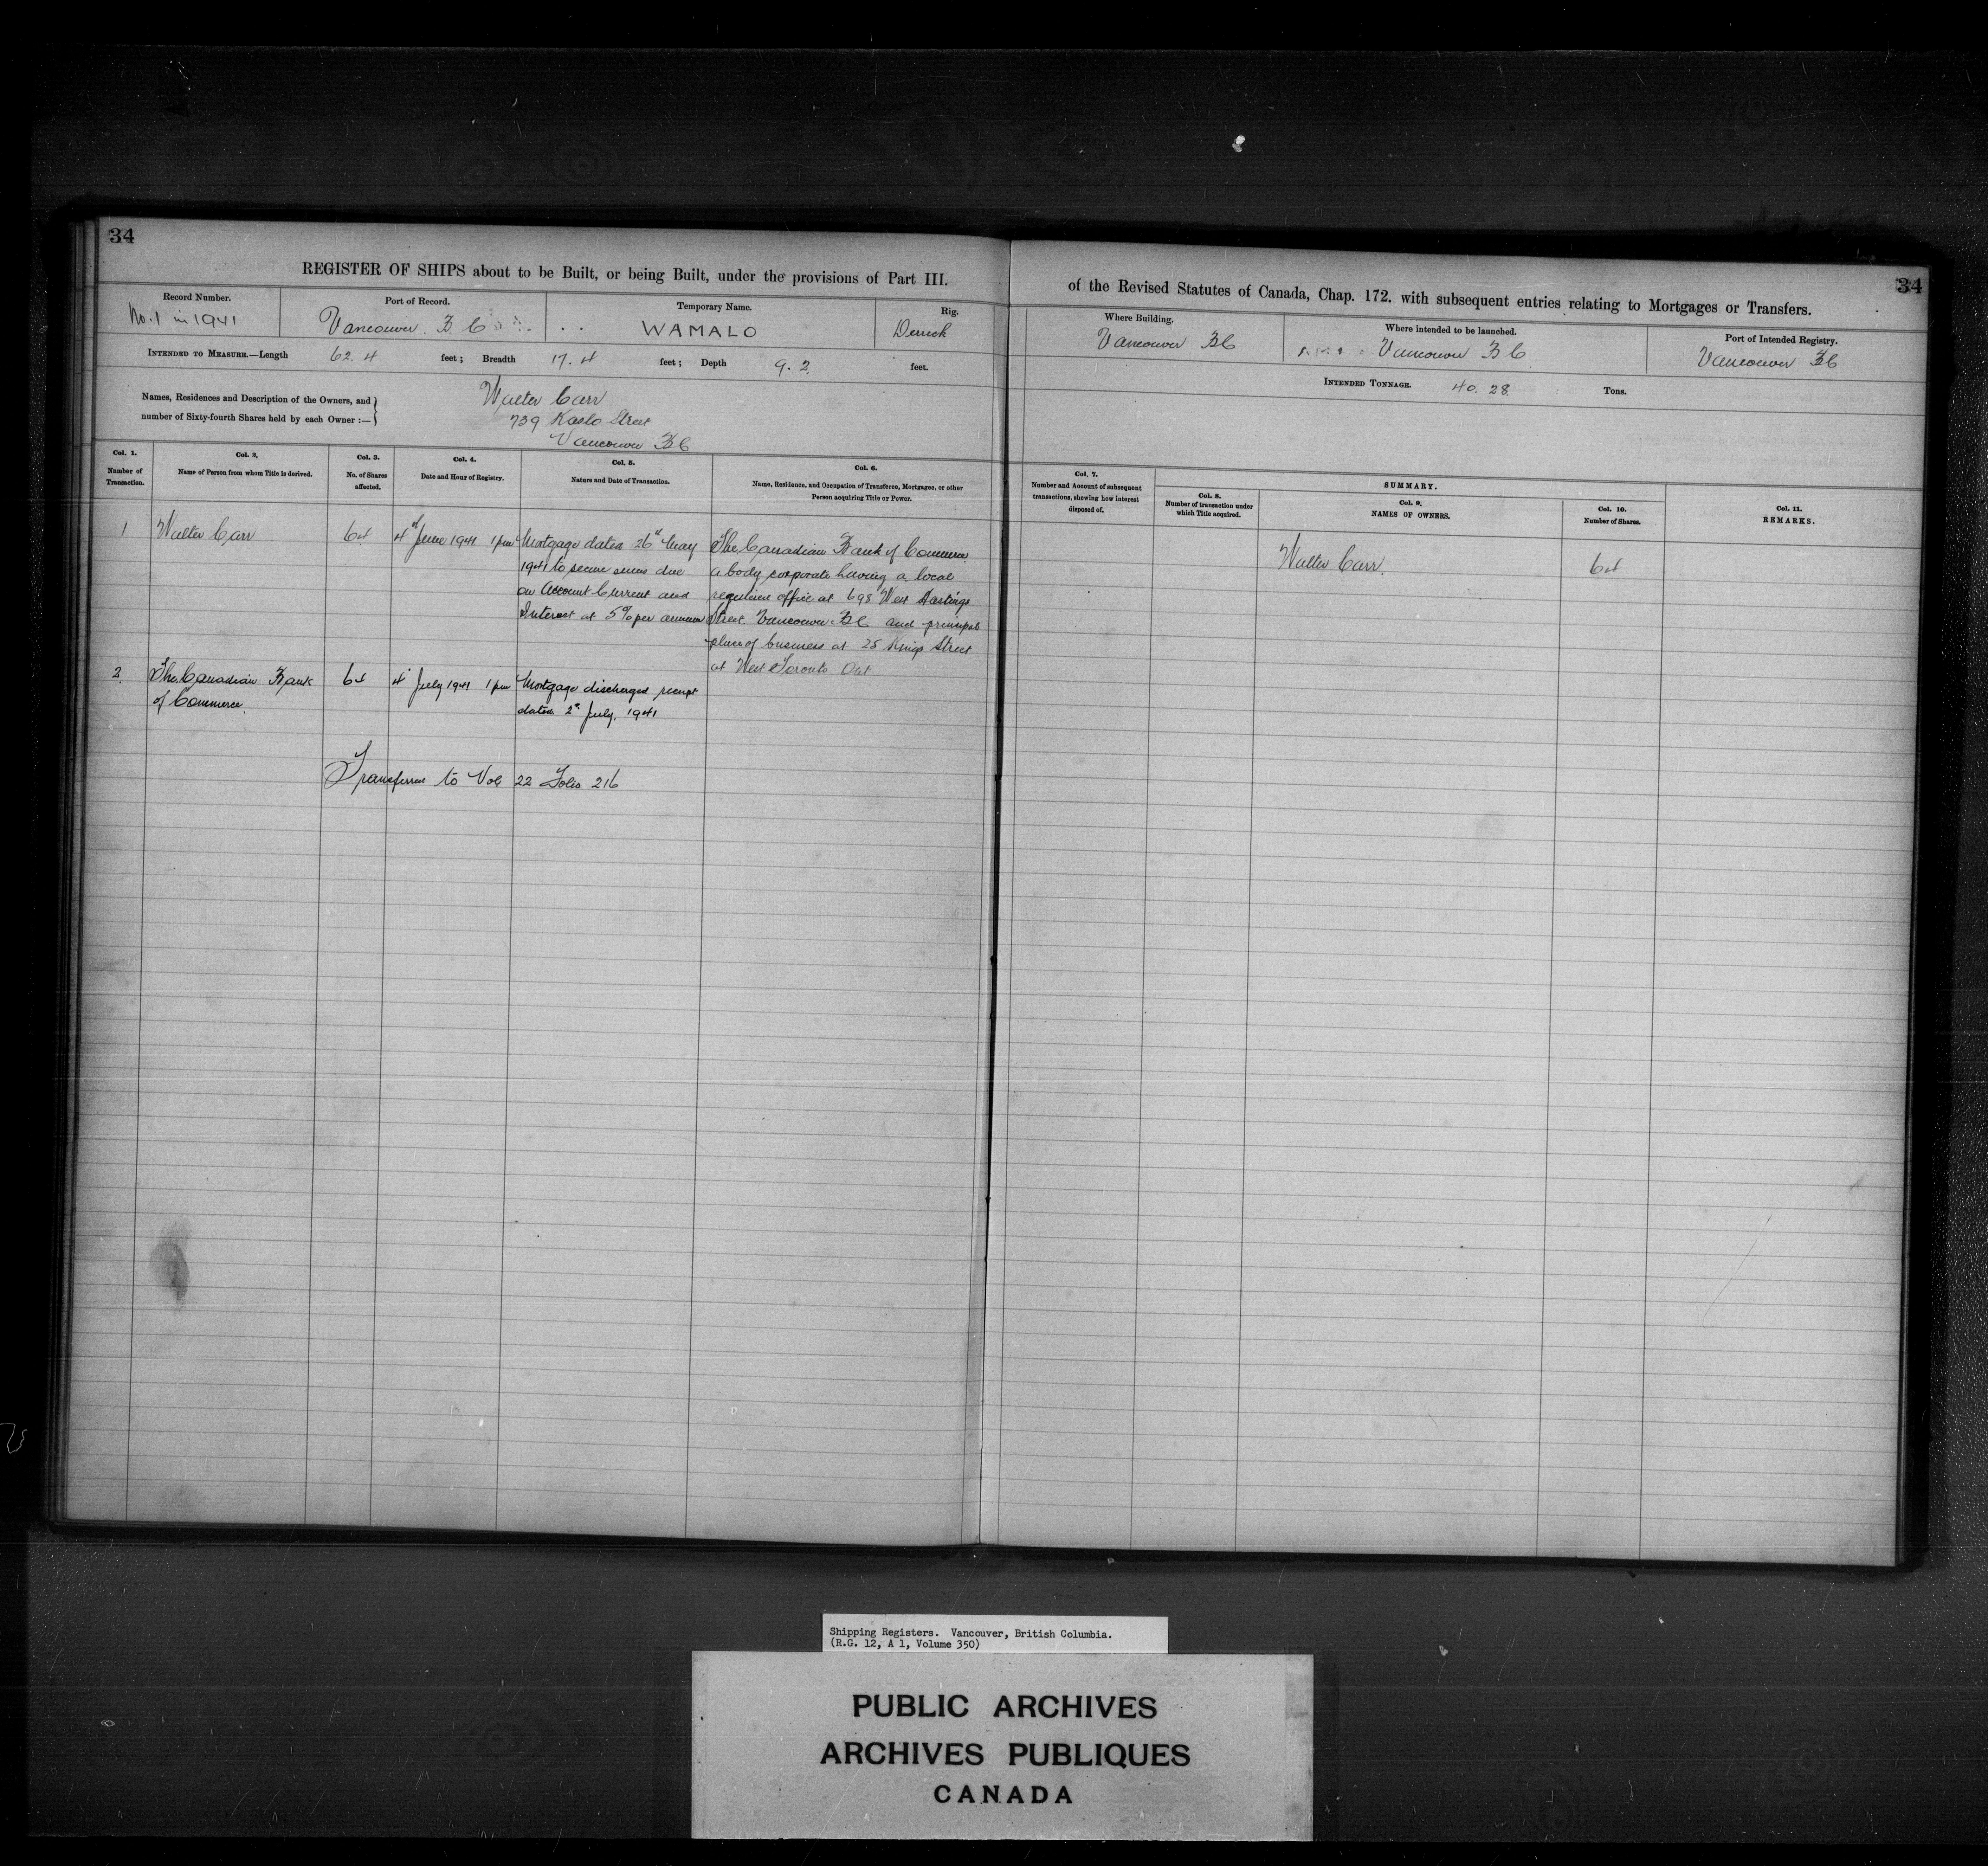 34
REGISTER OF SHIPS about to be Built, or being Built, under the provisions of Part III.
Record Number.
No. 1 in 1941
Port of Record.
Vancouver B C
Temporary Name.
WAMALO
Rig.
Derrick
INTENDED TO MEASURE.—Length 62.4 feet; Breadth 17.4 feet; Depth 9.2 feet.
Names, Residences and Description of the Owners, and
number of Sixty-fourth Shares held by each Owner :—
Walter Carr
739 Kaslo Street
Vancouver BC
Col. 1.
Number of
Transaction.
Col. 2.
Name of Person from whom Title is derived.
Col. 3.
No. of Shares
affected.
Col. 4.
Date and Hour of Registry.
Col. 5.
Nature and Date of Transaction.
Col. 6.
Name, Residence, and Occupation of Transferee, Mortgagee, or other
Person acquiring Title or Power.
1
Walter Carr
64
4th June 1941 1 pm
Mortgage dated 26th May
1941 to secure sums due
on Account Current and
Interest at 5% per annum
The Canadian Bank of Commerce
a body corporate having a local
office at 698 West Hastings
Street Vancouver BC and principal
place of business at 25 Kings Street
at West Toronto Ont
2
The Canadian Bank
of Commerce
64
4 July 1941 1 pm
Mortgage discharged receipt
dated 2nd July, 1941
Transferred to Vol 22 Folio 216
34
of the Revised Statutes of Canada, Chap. 172. with subsequent entries relating to Mortgages or Transfers.
Where Building.
Vancouver BC
Where intended to be launched.
Vancouver BC
Port of Intended Registry.
Vancouver BC
INTENDED TONNAGE. 40.28 Tons.
Col. 7.
Number and Account of subsequent
transactions, shewing how interest
disposed of.
SUMMARY.
Col. 8.
Number of transaction under
which Title acquired.
Col. 9.
NAMES OF OWNERS.
Col. 10.
Number of Shares.
Col. 11.
REMARKS.
Walter Carr.
64
Shipping Registers. Vancouver, British Columbia.
(R.G. 12, A 1, Volume 350)
PUBLIC ARCHIVES
ARCHIVES PUBLIQUES
CANADA